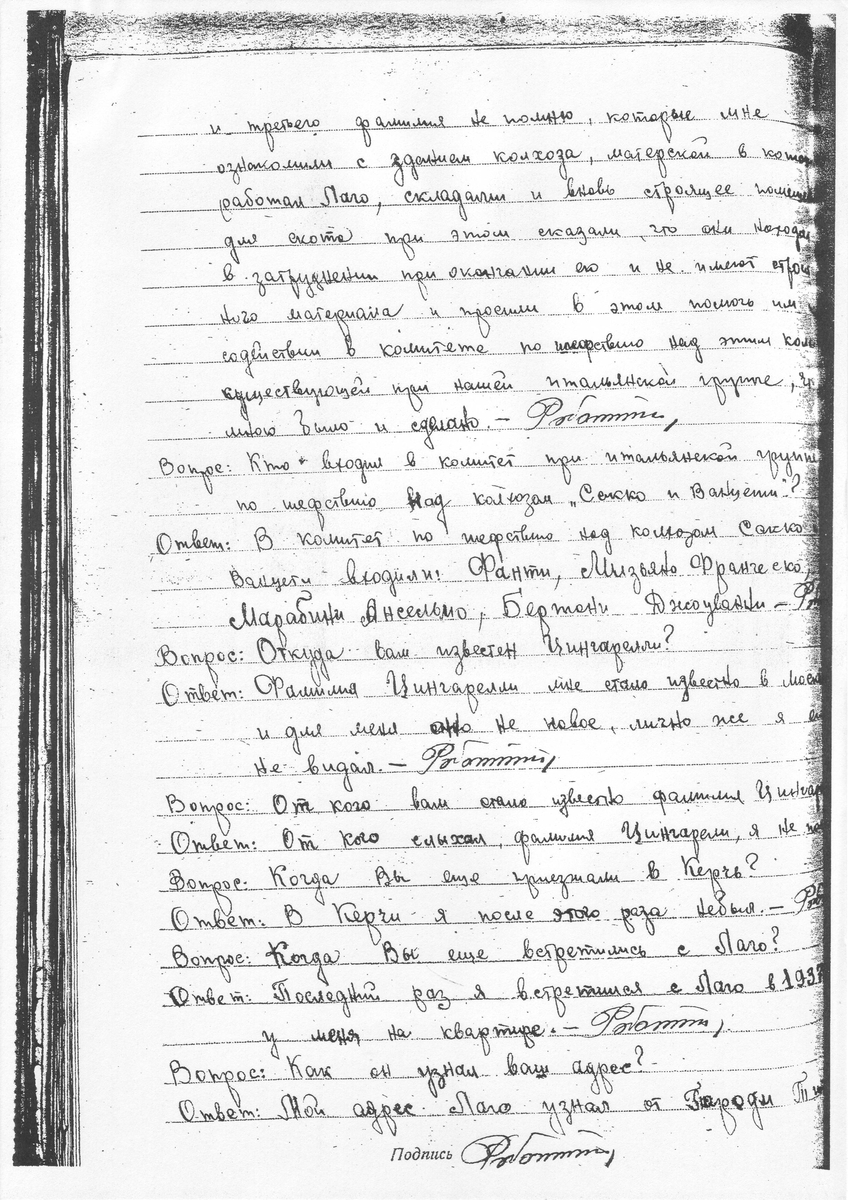 и третьего фамилия не помню, которые мне
ознакомили с зданием колхоза, матерской в кото
работал Лаго, складами и вновь строящее помеще
для скота при этом сказали, что они находя
в затруднении при окончании его и не имеют строи
ного материала и просили в этом помочь им
содействии в комитете по шефствию над этим кол
существующей при нашей итальянской группе,
мною было и сделано. — Роботти
Вопрос: Кто входил в комитет при итальянской групп
по шефствию над колхозам „Сакко и Ванцети"?
Ответ: В комитет по шефствию над колхозом Сакко
Ванцети входили: Фанти, Мизьяно Франческо,
Марабини Ансельмо, Бертони Джованни —
Вопрос: Откуда вам известен Цингарелли?
Ответ: Фамилия Цингарелли мне стало известно в Моск
и для меня оно не новое, лично же я е
не видал. — Роботти
Вопрос: От кого вам стало известно фамилия Цингар
Ответ: От кого слыхал, фамилия Цингарели, я не по
Вопрос: Когда Вы еще приезжали в Керчь?
Ответ: В Керчи я после этого раза небыл. —
Вопрос: Когда Вы еще встретились с Лаго?
Ответ: Последний раз я встретился с Лаго в 1937
у меня на квартире. — Роботти
Вопрос: Как он узнал ваш адрес?
Ответ: Мой адрес Лаго узнал от Пароди
Подпись Роботти